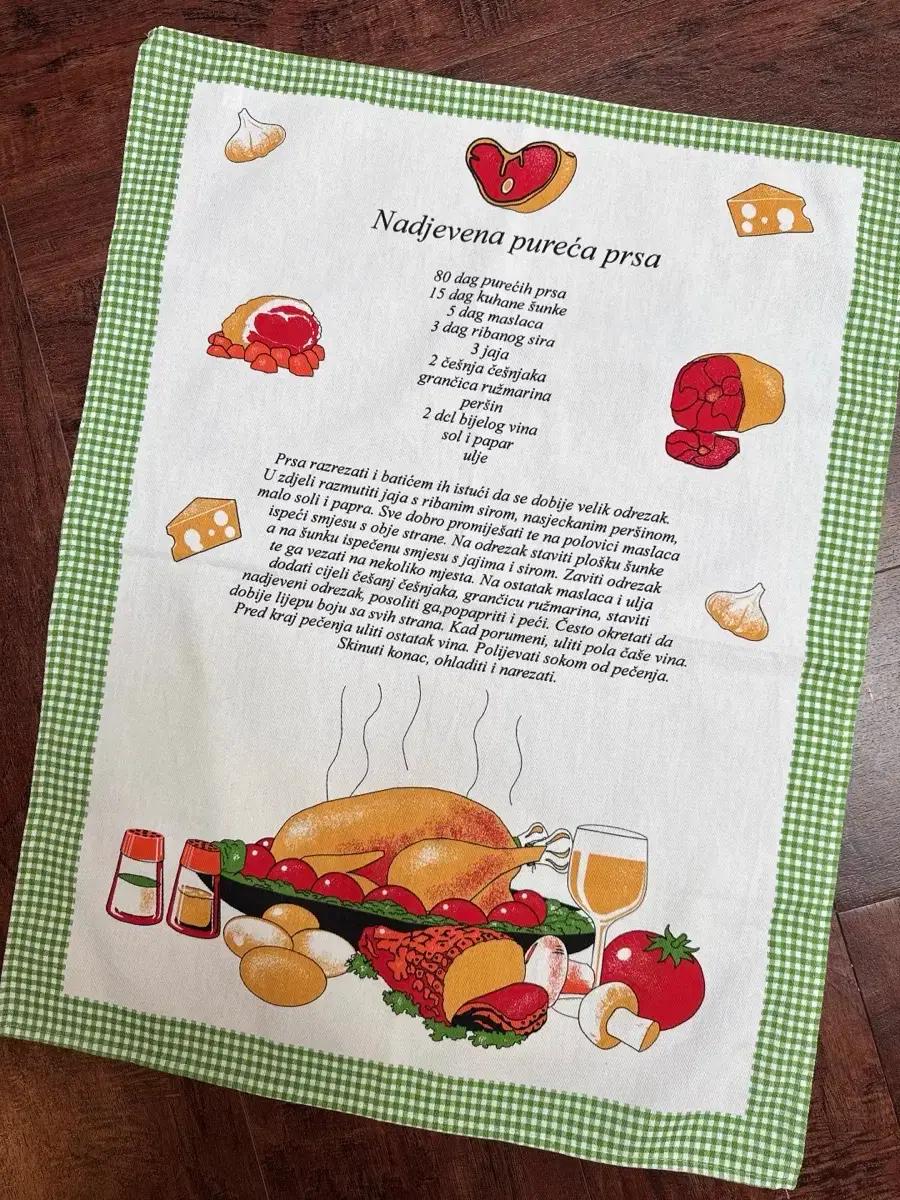 Nadjevena pureća prsa
80 dag purećih prsa
15 dag kuhane šunke
5 dag maslaca
3 dag ribanog sira
3 jaja
2 češnja češnjaka
grančica ružmarina
peršin
2 dcl bijelog vina
sol i papar
ulje
Prsa razrezati i batićem ih istući da se dobije velik odrezak.
U zdjeli razmutiti jaja s ribanim sirom, nasjeckanim peršinom,
malo soli i papra. Sve dobro promiješati te na polovici maslaca
ispeći smjesu s obje strane. Na odrezak staviti plošku šunke
a na šunku ispečenu smjesu s jajima i sirom. Zaviti odrezak
te ga vezati na nekoliko mjesta. Na ostatak maslaca i ulja
dodati cijeli češanj češnjaka, grančicu ružmarina, staviti
nadjeveni odrezak, posoliti ga,popapriti i peći. Često okretati da
dobije lijepu boju sa svih strana. Kad porumeni, uliti pola čaše vina.
Pred kraj pečenja uliti ostatak vina. Polijevati sokom od pečenja.
Skinuti konac, ohladiti i narezati.